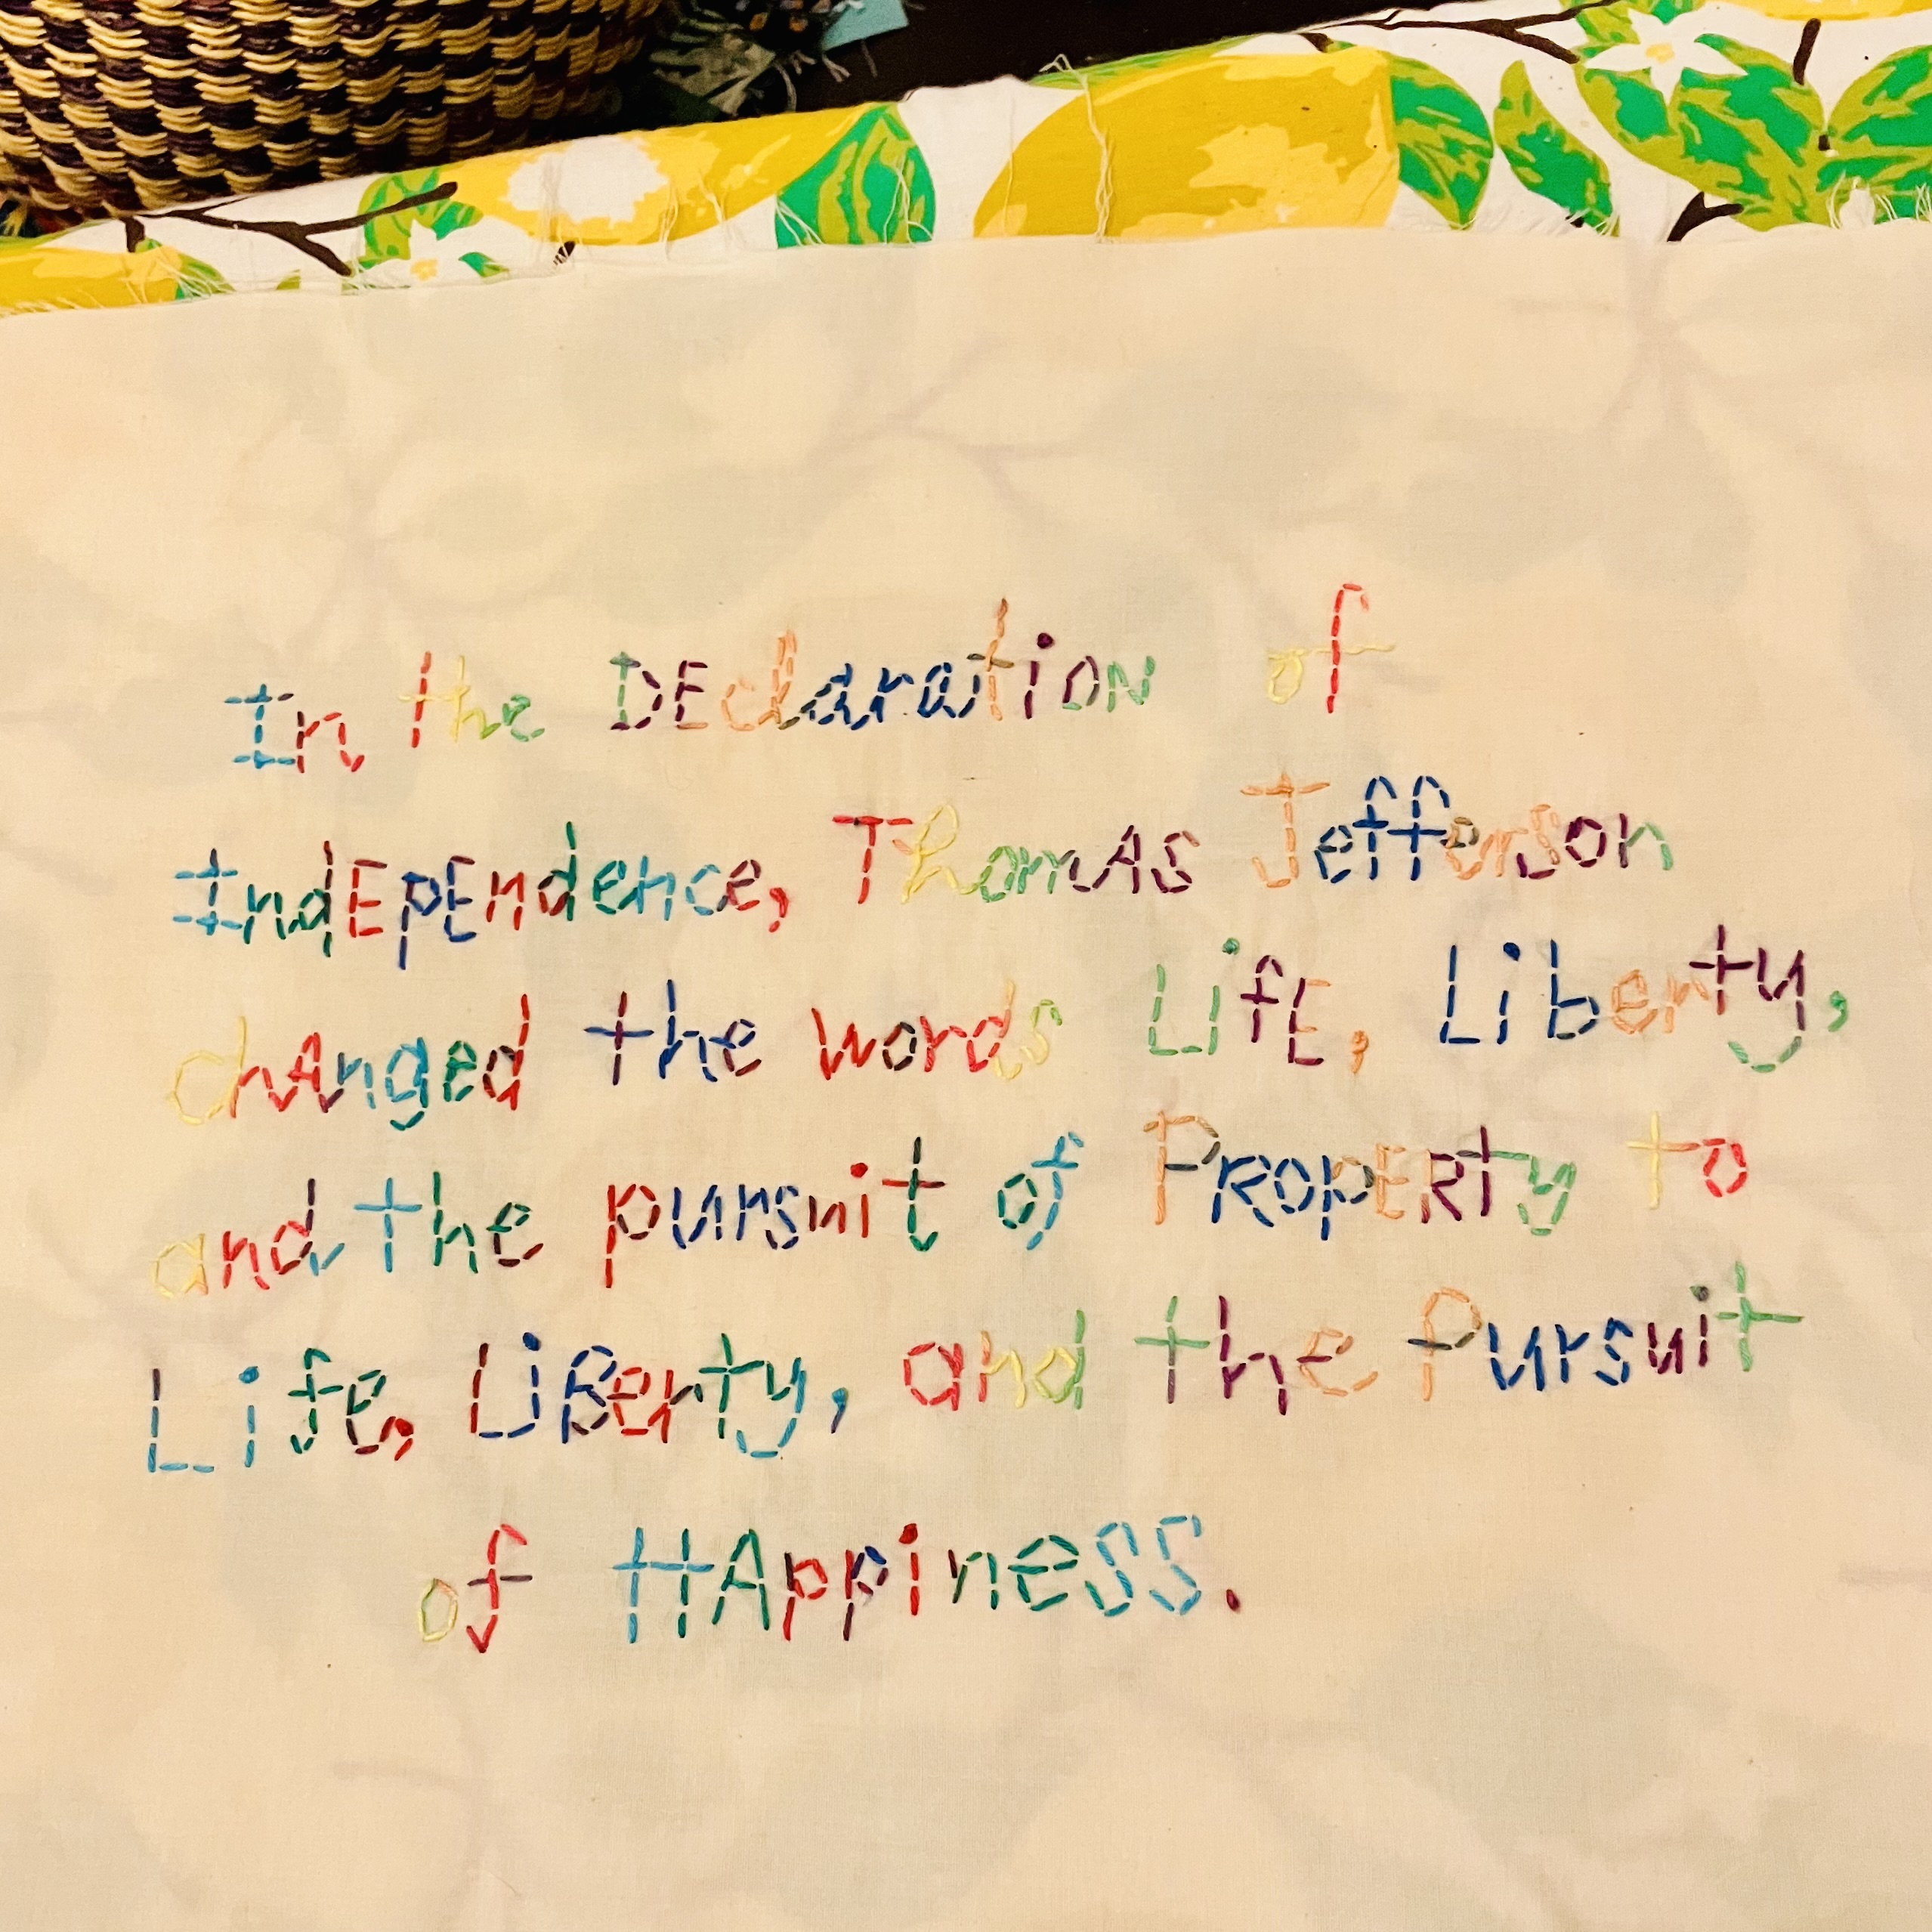 In the DEclaratiON of
IndEpEndence, ThomAS Jefferson
chAnged the words LifE, Liberty,
and the pursuit of PROpERty to
Life, LiBerty, and the Pursuit
of HAppineSS.